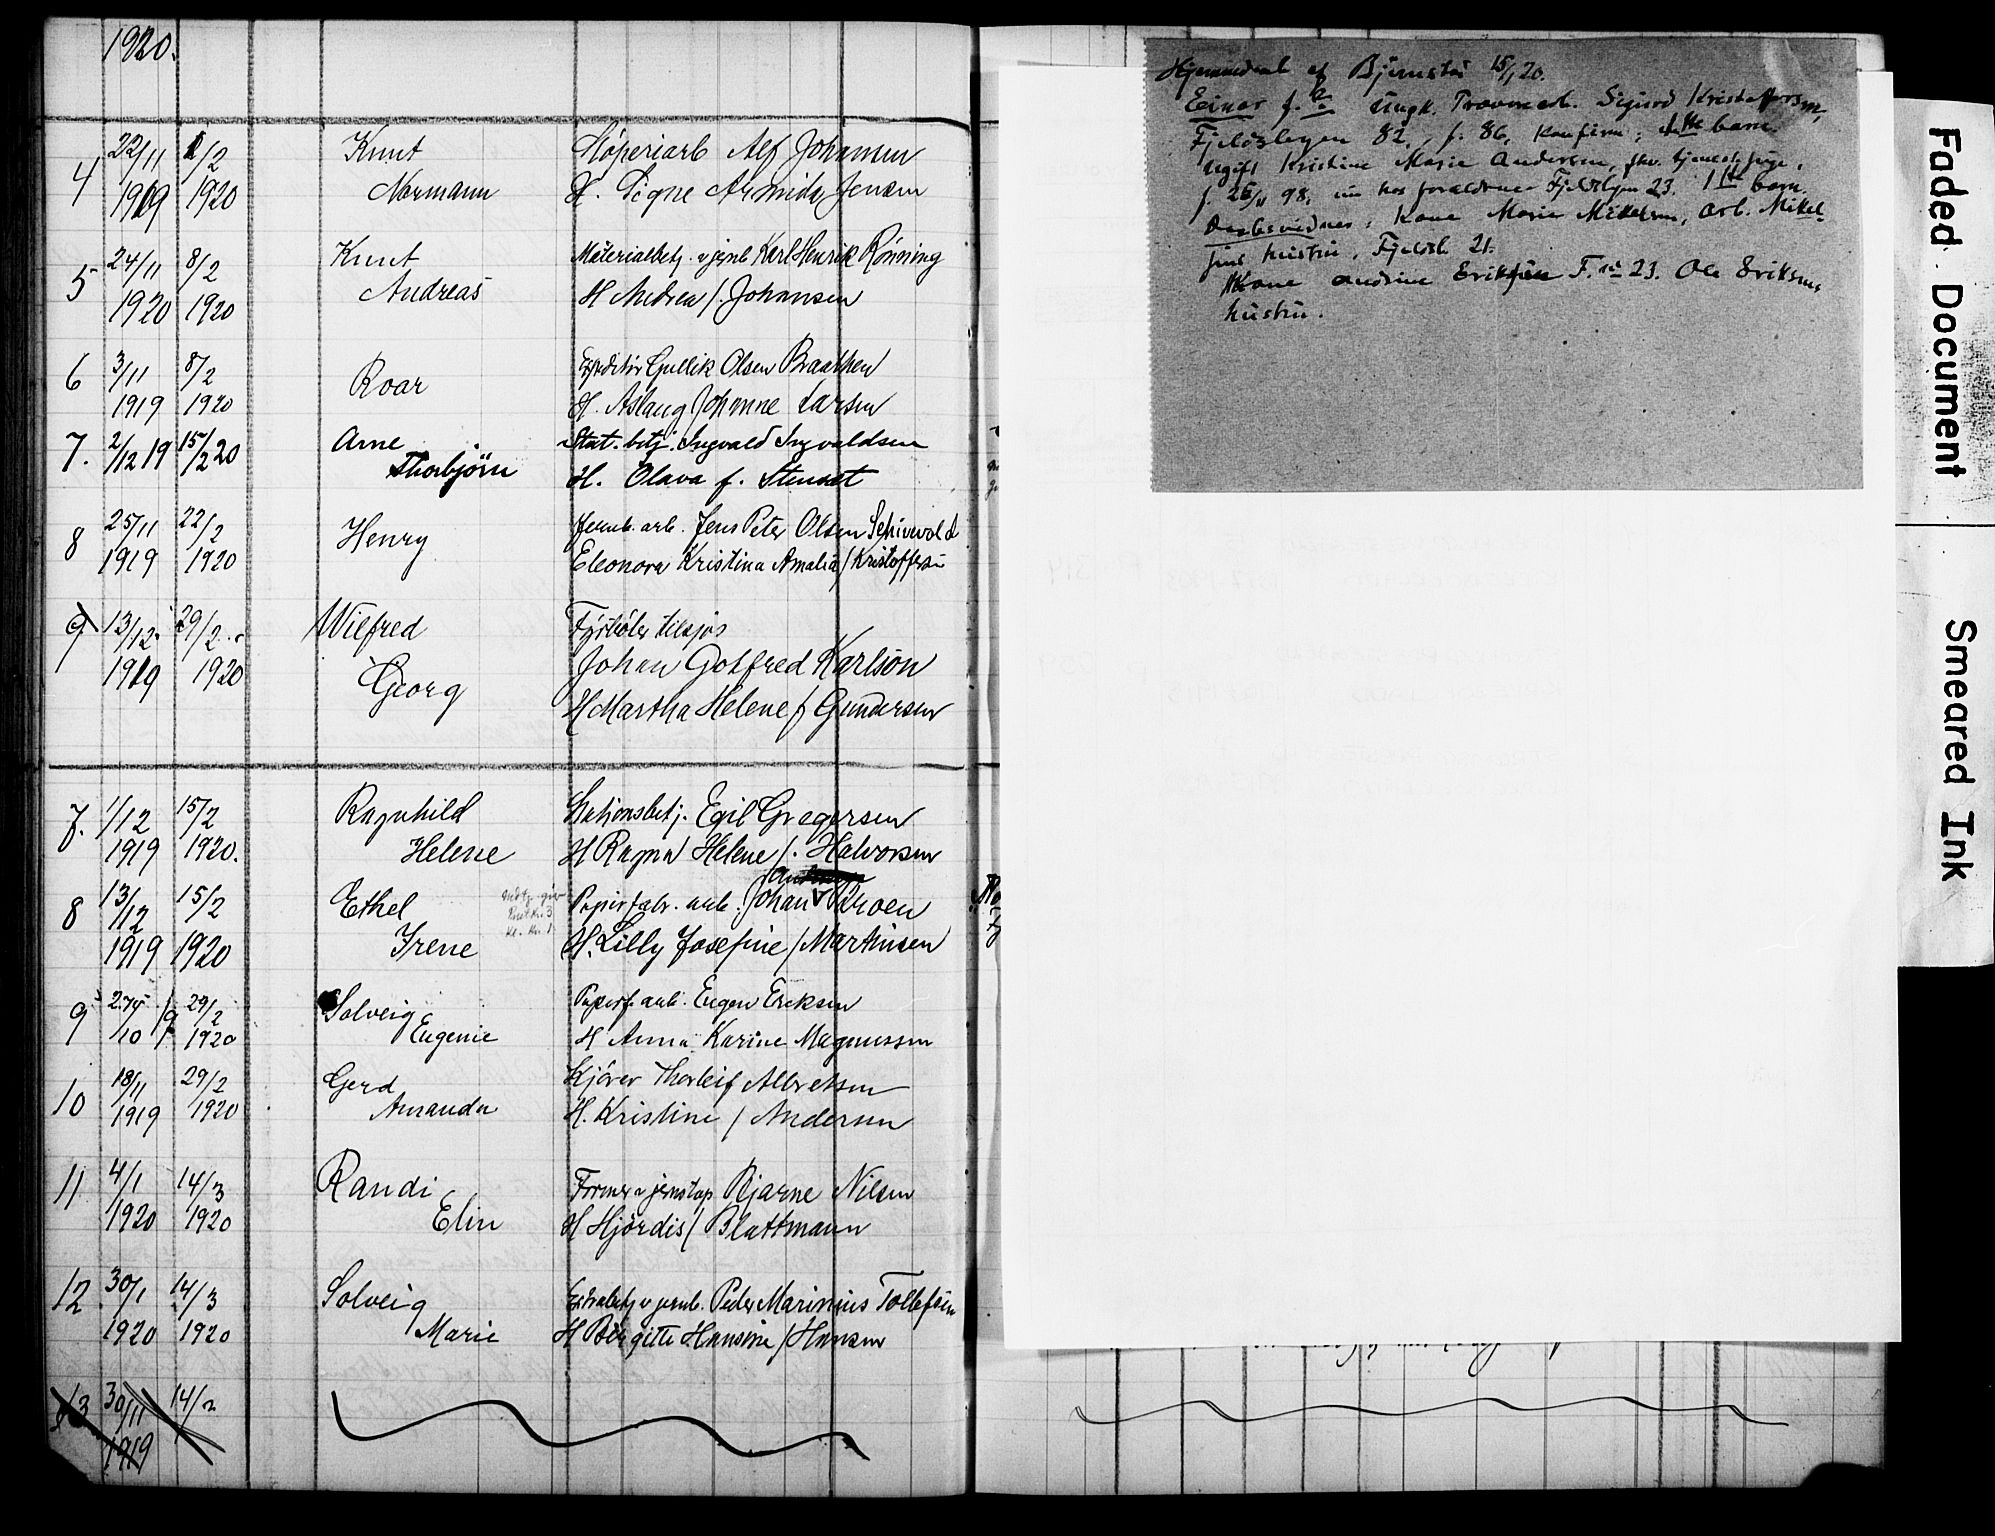 1920.
4 22/11 1919 1/2 1920 Knut Normann Støperiarb Alf Johansen
H. Signe Armida Jensen
5 24/11 1920 8/2 1920 Knut Andreas Materialbetj. v jernb Karl Henrik Rönning
H Andrea f. Johansen
6 3/11 1919 8/2 1920 Roar Expeditör Gullik Olsen Braathen
H. Aslaug Johanne Larsen
7. 2/12 19 15/2 20 Arne Thorbjörn Stat. betj. Ingvald Ingvaldsen
H. Olava f. Stensæt
8 25/11 1919 22/2 1920 Henry Jernb. arb. Jens Peter Olsen
Eleonora Kristina Amalia f Kristoffersen
9 13/12 1919 29/2 1920 Wilfred Georg Fyrböter tilsjøs
Johan Gotfred Karlson
H Martha Helene f Gundersen
7. 1/12 1919 15/2 1920. Ragnhild Helene Stationsbetj. Egil Gregersen
H Ragna Helene f. Halvorsen
8 13/12 1919 15/2 1920 Ethel Irene Papirfabr. arb. Johan Broen
H. Lilly Josefine f Martinsen
9 10 29/2 1920 Solveig Eugenie Papirf. arb. Eugen Eriksen
H Anna Karine Magnussen
10 18/11 1919 29/2 1920 Gerd Amanda Kjörer Thorleif Albretsen
H. Kristine f Andersen
11 4/1 1920 14/3 1920 Randi Elin Former v jernstøp Bjarne Nilsen
H Hjördis f Blattmann
12 30/1 1920 14/3 1920 Solveig Marie Extrabetj v jernb. Peder Marinius Tollefsen
H Birgitte Hansine f Hansen
13 30/11 1919 14/2
Hjemmedøbt af 15/1 20.
Einar f. Ungk. Sigurd Kristoffersen,
82, f. 86, Konfirm; barn.
Ugift Kristine Marie Andersen,
f. 98, hos forældrene 23. 1ste barn.
Kone Marie Mikelsen, arb. Mikel-
sens hustru, Fjeldsl. 21.
Kone Andrine Eriksen F. 23. Ole Eriksens
hustru.
Faded Document
Smeared Ink